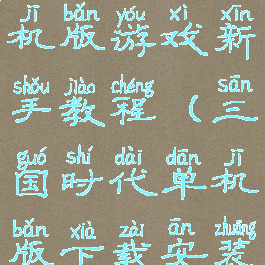 jī bǎn yóu xì xīn
机版游戏新
shǒu jiào chéng sān
手教程（三
guó shí dài dān jī
国时代单机
bǎn xià zài ān zhuāng
版下载安装